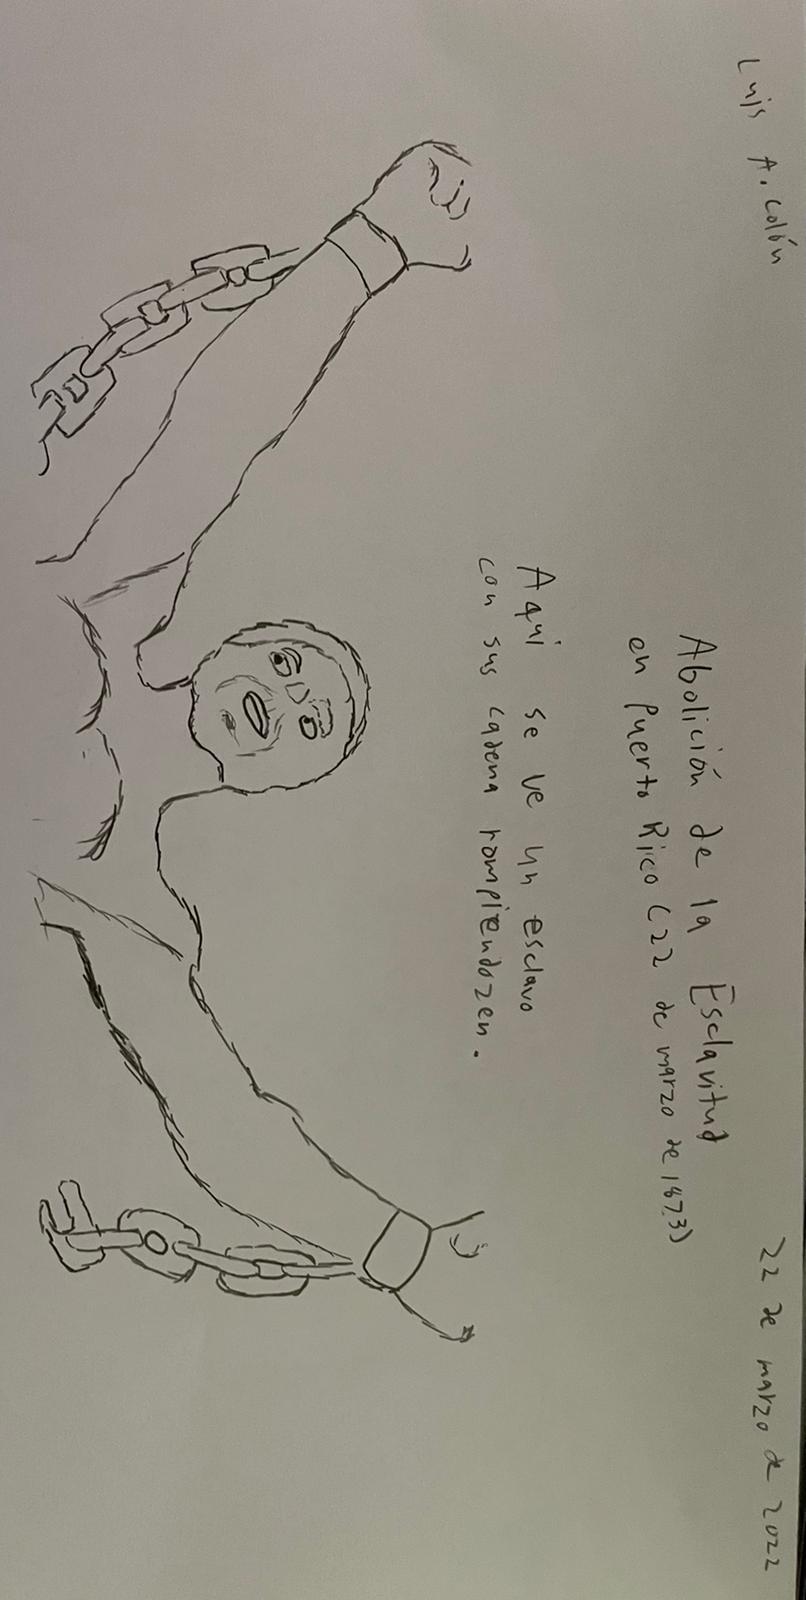 Luis A. Colón
22 de marzo de 2022
Abolición de la Esclavitud
en Puerto Rico (22 de marzo de 1873)
Aqui se ve un esclavo
con sus cadena rompiendozen.